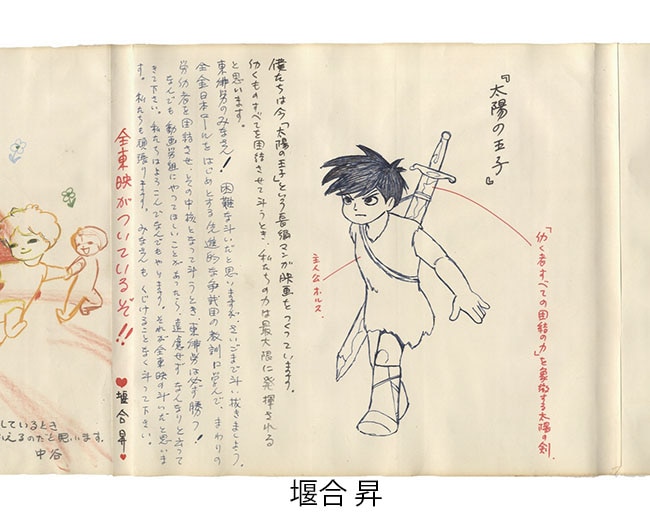 『太陽の王子』
「仂く者すべての団結の力」を象徴する太陽の剣.
主人公ホルス.
僕たちは今「太陽の王子」という長編マンガ映画をつくっています。
仂くものすべてを団結させて斗うとき、私たちの力は最大限に発揮される
と思います。
東撮労のみなさん! 困難な斗いだと思いますが、さいごまで斗い抜きましょう。
全金日本ロールをはじめとする先進的な争議団の教訓に学んで、まわりの
労仂者を団結させ、その中核となって斗うとき、東撮労は必ず勝つ!
なんでも動画労組にやってほしいことがあったら、遠慮せずなんなりと云って
きて下さい。私たちはよろこんでなんでもやります。それが全東映の斗いだと思いま
す。私たちも頑張ります。みなさんもくじけることなく斗って下さい。
全東映がついているぞ!!
♥堰合昇♥
しているとき
いえるのだと思います.
中谷
堰合 昇